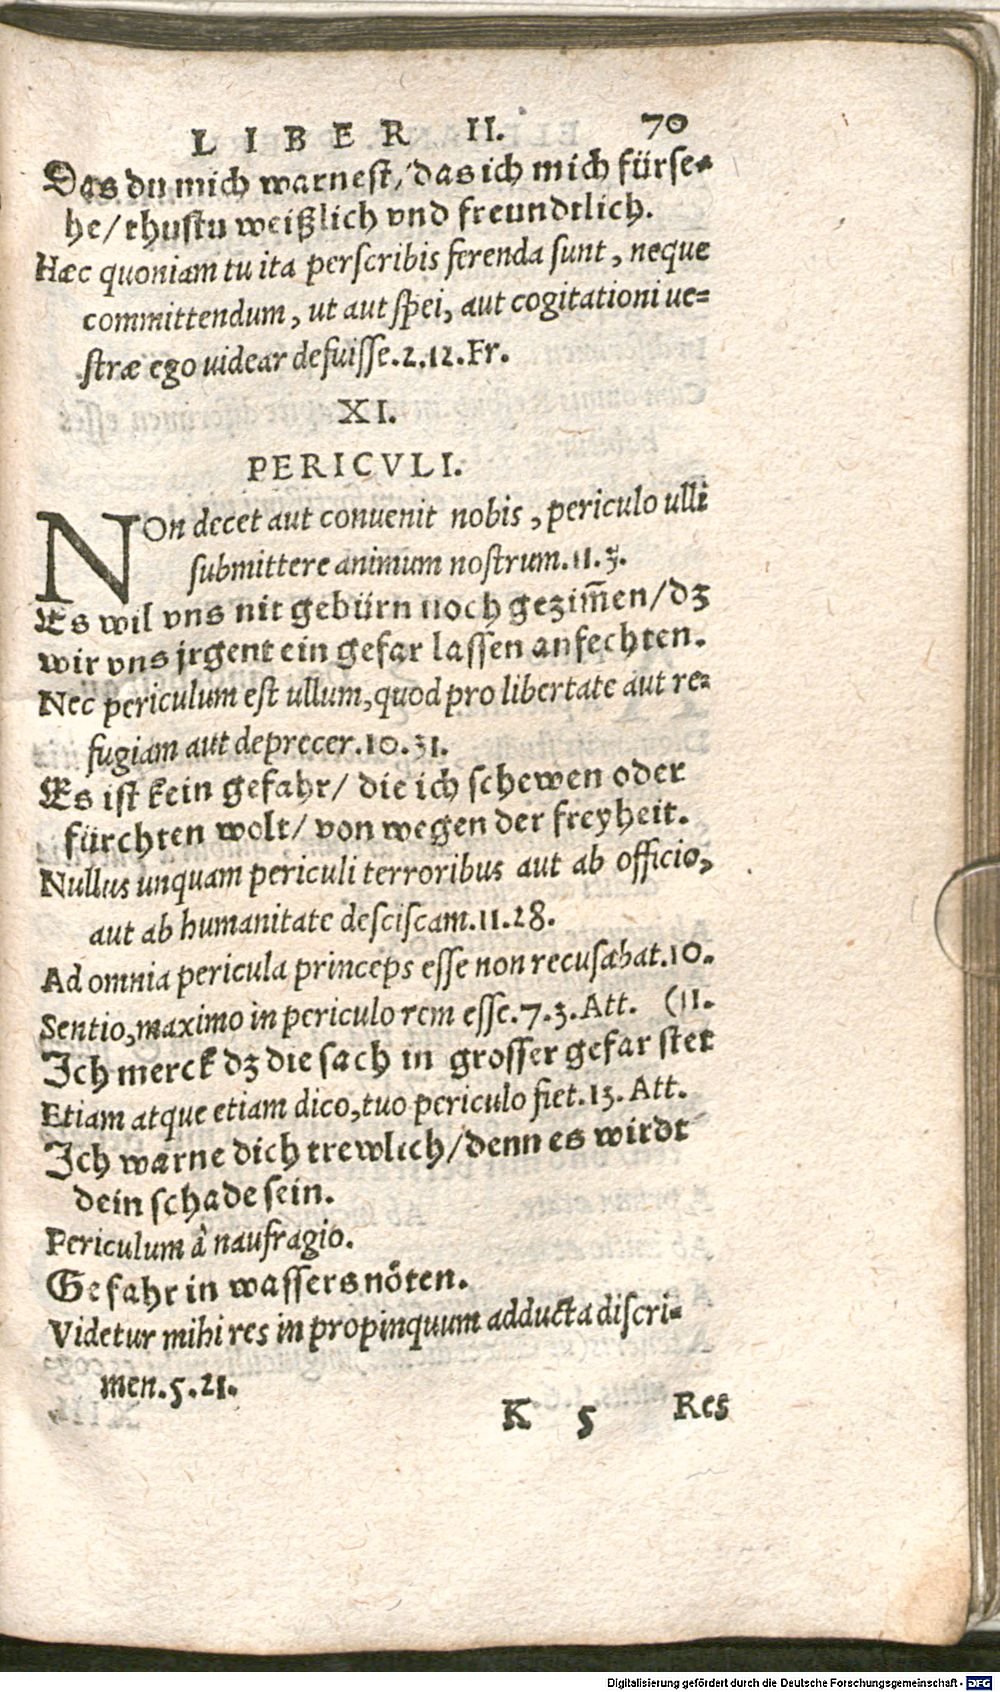 LIBER II. 70
Das du mich warnest/ das ich mich fürse-
he/ thustu weißlich vnd freundtlich.
Hæc quoniam tu ita perscribis ferenda sunt, neque
committendum, ut aut spei, aut cogitationi ue-
stræ ego uidear defuisse. 2. 12. Fr.
XI.
PERICVLI.
NOn decet aut conuenit nobis, periculo ulli
submittere animum nostrum. 11. 3.
Es wil vns nit gebürn noch gezim̄en/ dz
wir vns jrgent ein gefar lassen anfechten.
Nec periculum est ullum, quod pro libertate aut re-
fugiam aut deprecer. 10. 31.
Es ist kein gefahr/ die ich schewen oder
fürchten wolt/ von wegen der freyheit.
Nullus unquam periculi terroribus aut ab officio,
aut ab humanitate desciscam. 11. 28.
Ad omnia pericula princeps esse non recusabat. 10.
Sentio, maximo in periculo rem esse. 7. 3. Att. (11.
Ich merck dz die sach in grosser gefar stet
Etiam atque etiam dico, tuo periculo fiet. 13. Att.
Ich warne dich trewlich/ denn es wirdt
dein schade sein.
Periculum à naufragio.
Gefahr in wassersnöten.
Videtur mihi res in propinquum adducta discri-
men. 5. 21.
K 5 Res
Digitalisierung gefördert durch die Deutsche Forschungsgemeinschaft - DFG